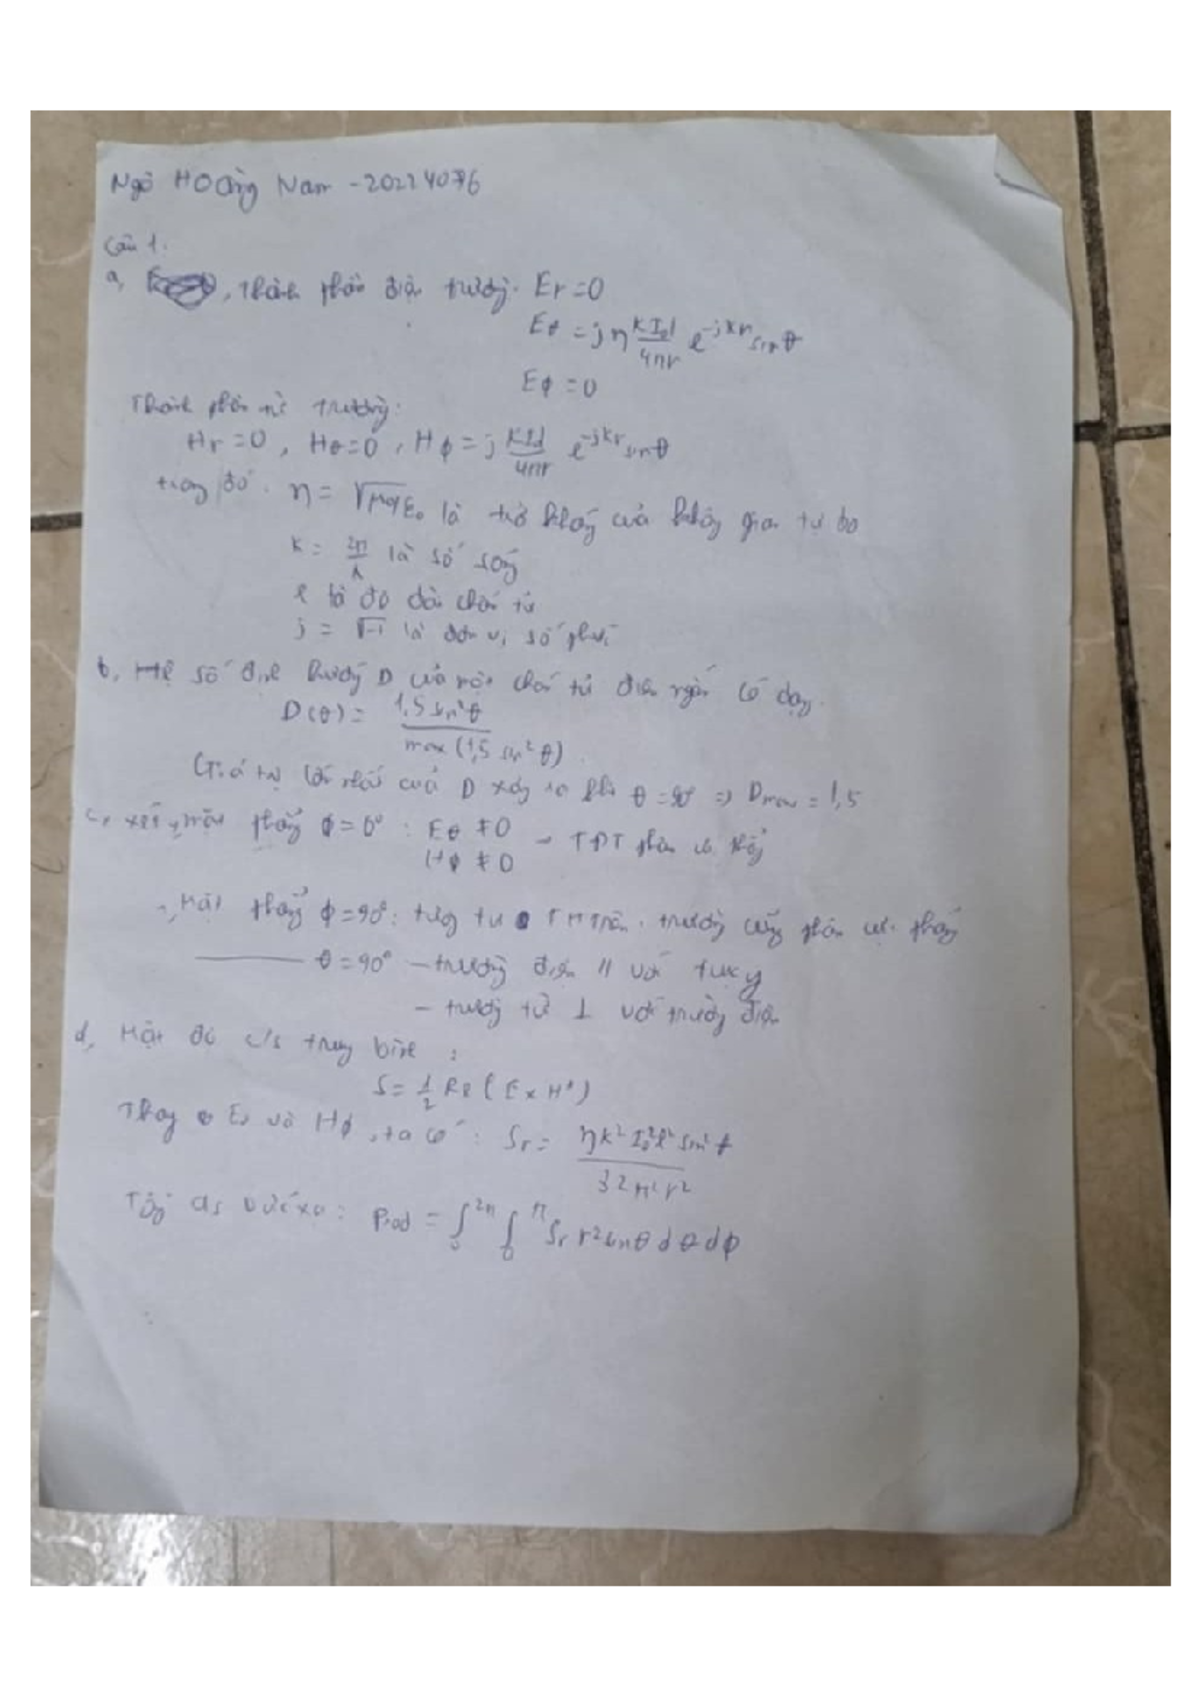 Ngô Hoàng Nam - 20224076
Câu 1:
a, Thành phần điện trường. Er = 0
Eθ = jη kI₀l/4πr e^-jkr sin θ
Eϕ = 0
Thành phần từ trường:
Hr = 0, Hθ = 0, Hϕ = j kI₀l/4πr e^-jkr sin θ
trong đó: η = √μ₀/ε₀ là trở kháng của không gian tự do
k = 2π/λ là số sóng
l là độ dài chấn tử
j = √-1 là đơn vị số phức
b, Hệ số định hướng D của một chấn tử điện ngắn có dạng.
D(θ) = 1,5 sin²θ / max(1,5 sin²θ).
Giá trị lớn nhất của D xảy ra khi θ = 90° => Dmax = 1,5
c, xét mặt phẳng ϕ = 0° : Eθ ≠ 0
Hϕ ≠ 0
Mặt phẳng ϕ = 90° : tương tự TH trên. trường cũng phân cực thẳng
θ = 90° - trường điện // với trục y
- trường từ ⊥ với trường điện
d, Mật độ c/s trung bình :
S = 1/2 Re (E x H*)
Thay Eθ và Hϕ, ta có : Sr = ηk²I₀²l² sin²θ / 32π²r²
Tổng cs bức xạ : Prad = ∫₀^2π ∫₀^π Sr r² sin θ dθ dϕ